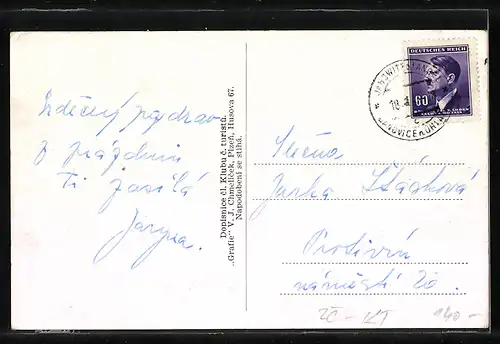 Srdečný pozdrav
z prázdnin
Ti zasílá
Jarča.
Dopisnice čl. Klubu č. turistů.
„Grafie“ V. J. Chmelíček, Plzeň, Husova 67.
Napodobení se stíhá.
DEUTSCHES REICH
60
JANOWITZ
18.
JANOVICE
Slečna
Jarka
Protivín
náměstí 20.
ZČ - KT
140-